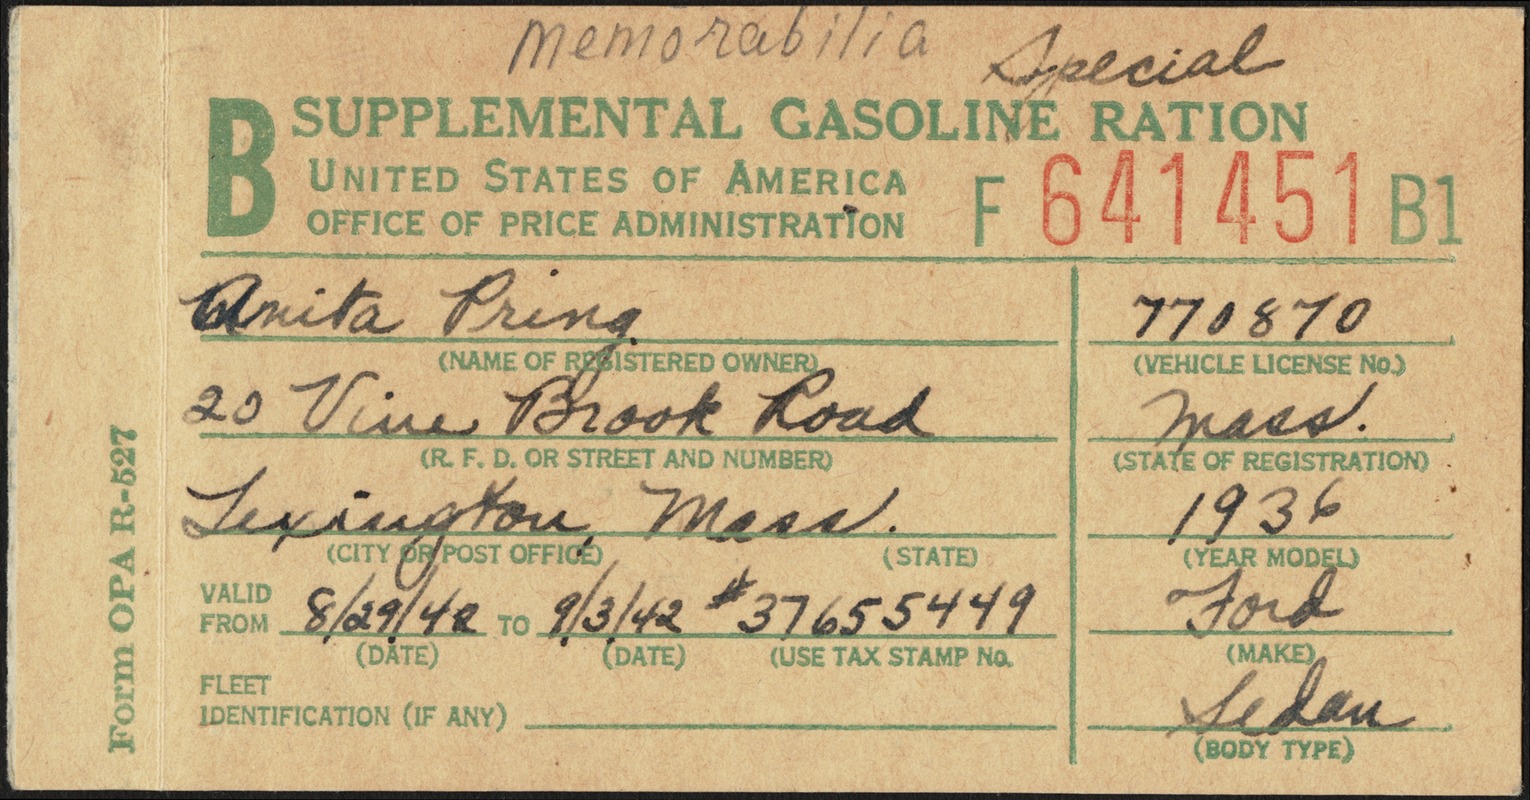 memorabilia
Special
B SUPPLEMENTAL GASOLINE RATION
UNITED STATES OF AMERICA
OFFICE OF PRICE ADMINISTRATION
F 641451 B1
Anita Pring
(NAME OF REGISTERED OWNER)
20 Vine Brook Road
(R. F. D. OR STREET AND NUMBER)
Lexington, Mass.
(CITY OR POST OFFICE) (STATE)
VALID FROM 8/29/42 TO 9/3/42 #37655449
(DATE) (DATE) (USE TAX STAMP No.
FLEET
IDENTIFICATION (IF ANY)
770870
(VEHICLE LICENSE No.)
Mass.
(STATE OF REGISTRATION)
1936
(YEAR MODEL)
Ford
(MAKE)
Sedan
(BODY TYPE)
Form OPA R-527